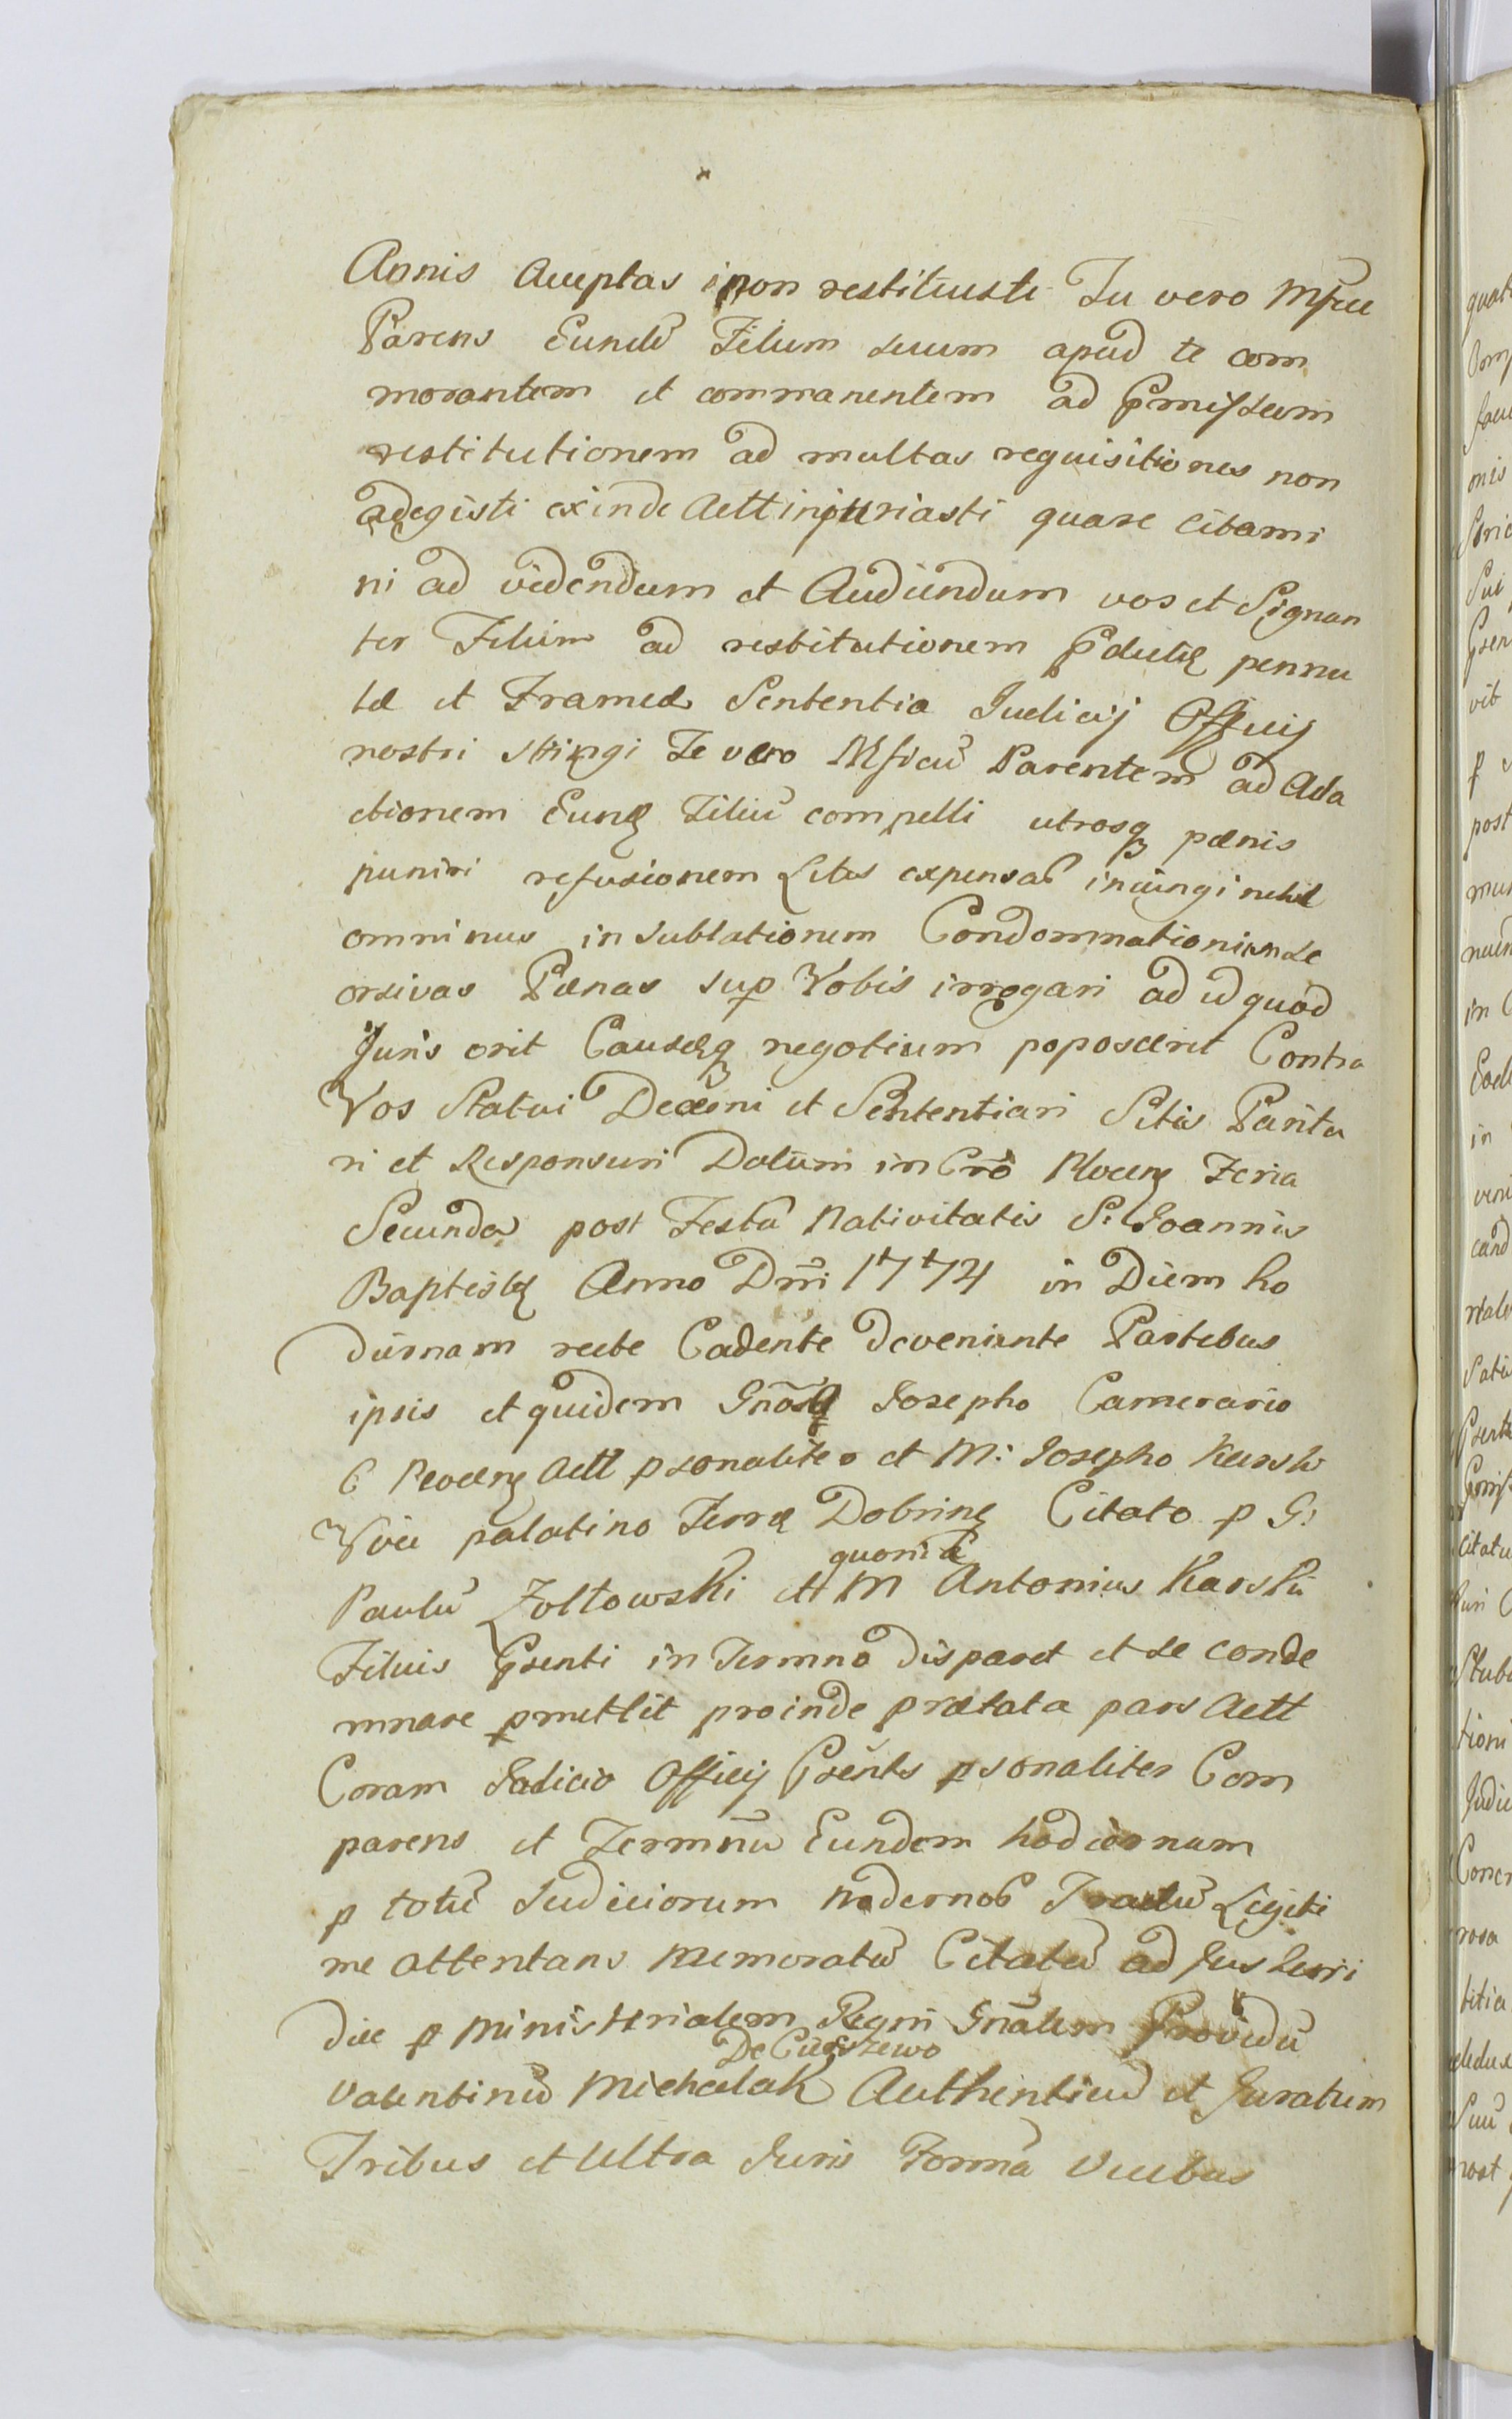 Annis Acceptas non restituisti Tu vero Mfice
Parens Eundē Filium suum apud te com
morantem et commanentem ad Pmissum
restitutionem ad multas requisitiones non
adegisti exinde Actt injuriasti quare Citami
ni ad videndum et Audiendum vos et Signan
ter Filium ad restitutionem Pdictæ pennu
læ et Frameæ Sententia Judicij Officij
nostri stringi Te vero Mficū Parentem ad Ada
ctionem Eunde Filiū compelli utrosq pænis
puniri refusionem Litis expensar iniungi nihil
ominus in sublationem Condemnationis se
orsivas Pænas sup Vobis irrogari ad id quod
Juris erit Causæq negotium poposcerit Contra
Vos Statui Decerni et Sententiari Sitis Paritu
ri et Responsuri Datum in Cro Plocen Feria
Secunda post Festū Nativitatis S: Joannis
Baptistæ Anno Dni 1774 in Diem ho
diernam recte Cadente deveniente Partibus
ipsis et quidem Gnoso Josepho Camerario
C Plocen Actt psonaliter et M: Josepho Karski
Vice palatino Terræ Dobrinen Citato p G:
Paulū Zołtowski et quoniā M Antonius Karski
Filius Psenti in Termno disparet et se conde
mnare pmittit proinde prætata pars Actt
Coram Judicio Officij Psentis psonaliter Com
parens et Terminū Eundem hodiernum
p totū Judiciorum modernor Tractū Legiti
me attentans memoratū Citatū ad Jus Juri
dice p Ministerialem Regni Gnalem Providū
Valentinū Michalak De Cieszewo Authenticū et Juratum
Tribus et Ultra Juris Formā Vicibus